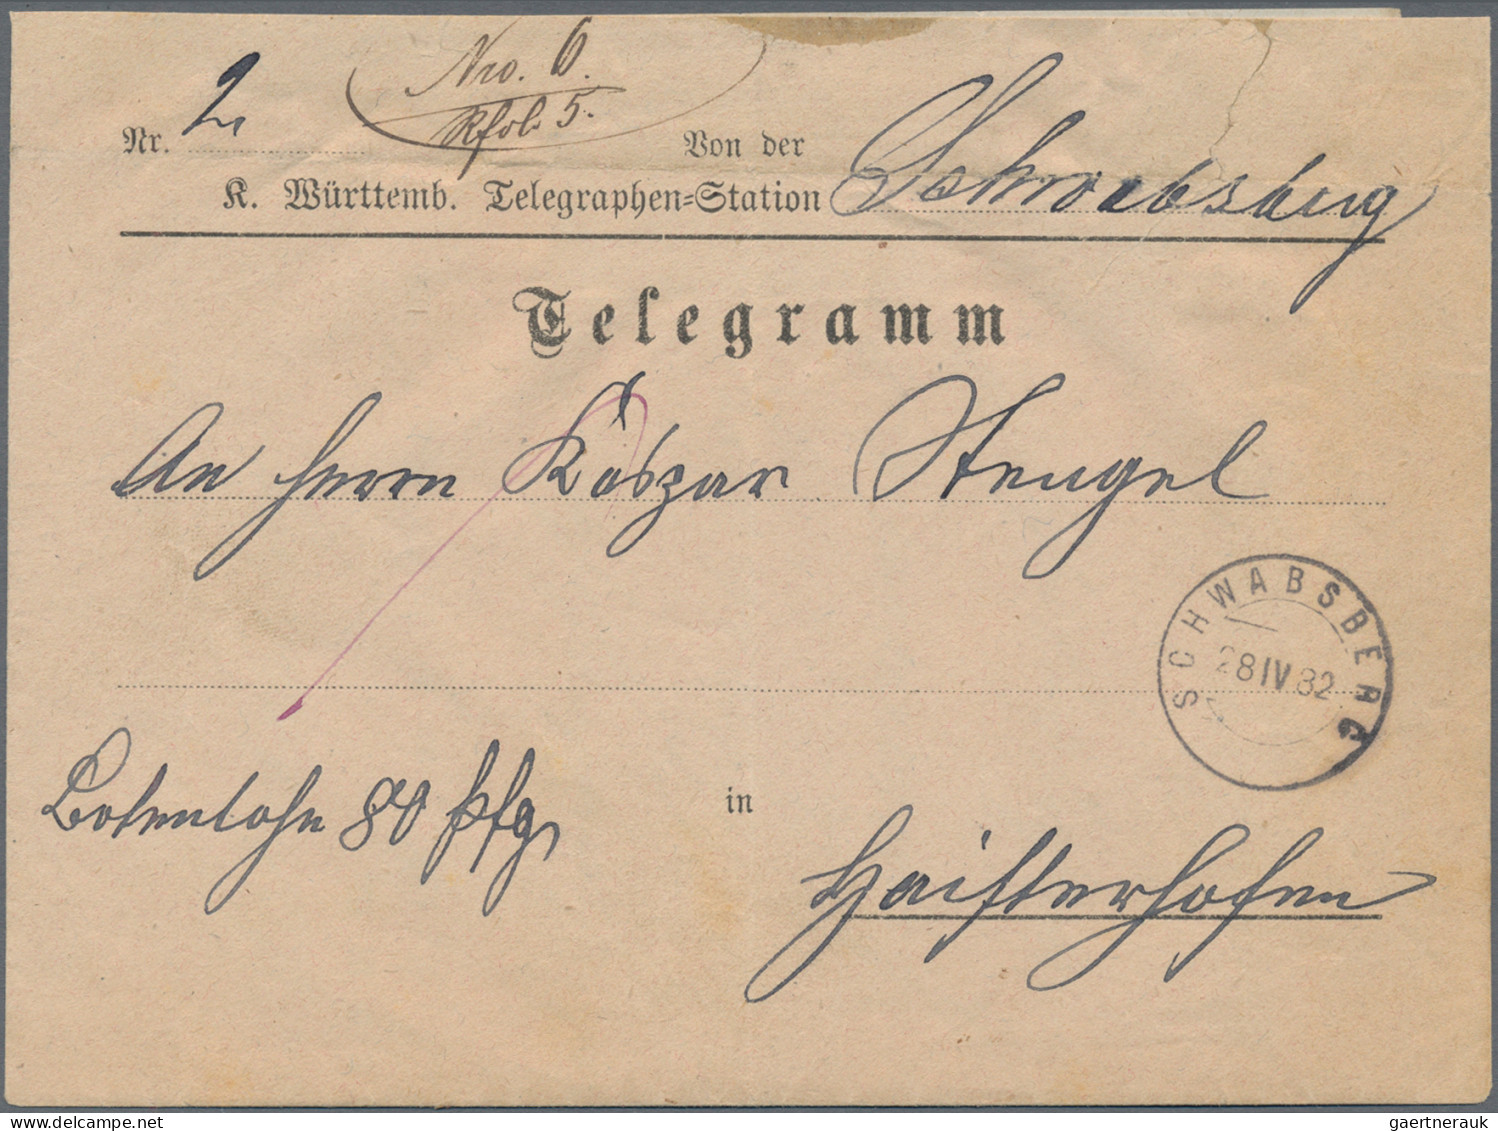 Nro. 6.
Nr. 2
5.
Von der
K. Württemb. Telegraphen=Station Schwabsberg
Telegramm
An Herrn Kaspar Stengel
SCHWABSBERG
28 IV 82
Botenlohn 80 Pfg.
in
Haisterhofen
gaertnerauk@delcampe.net